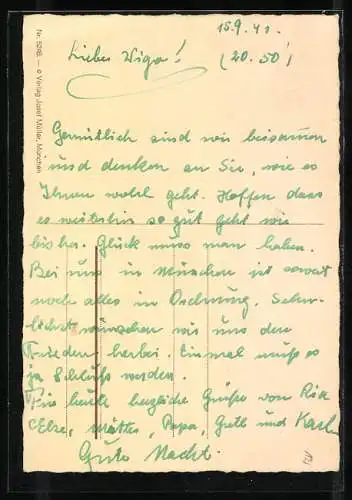 15.9.41.
Liebes Wiga! (20.50')
Gemütlich sind wir beisamen
und denken an Sie, wie es
Ihnen wohl geht. Hoffen dass
es weiterhin so gut geht wie
bisher. Glück muss man haben.
Bei uns in München ist soweit
noch alles in Ordnung. Sehn-
lichst wünschen wir uns den
Frieden herbei. Einmal muß es
ja Schluß werden.
Für heute herzliche Grüße von Ria
Else, Papa, Gretl und Karl
Gute Nacht.
Nr. 5285 — © Verlag Josef Müller, München